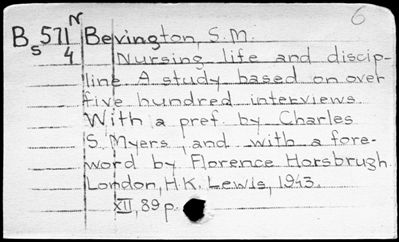 6
N
B 571 Bevington, S.M.
s 4 Nursing life and discip-
line. A study based on over
five hundred interviews.
With a pref. by Charles
S. Myers, and with a fore-
word by Florence Horsbrugh.
London, H.K. Lewis, 1943.
XII, 89 p.